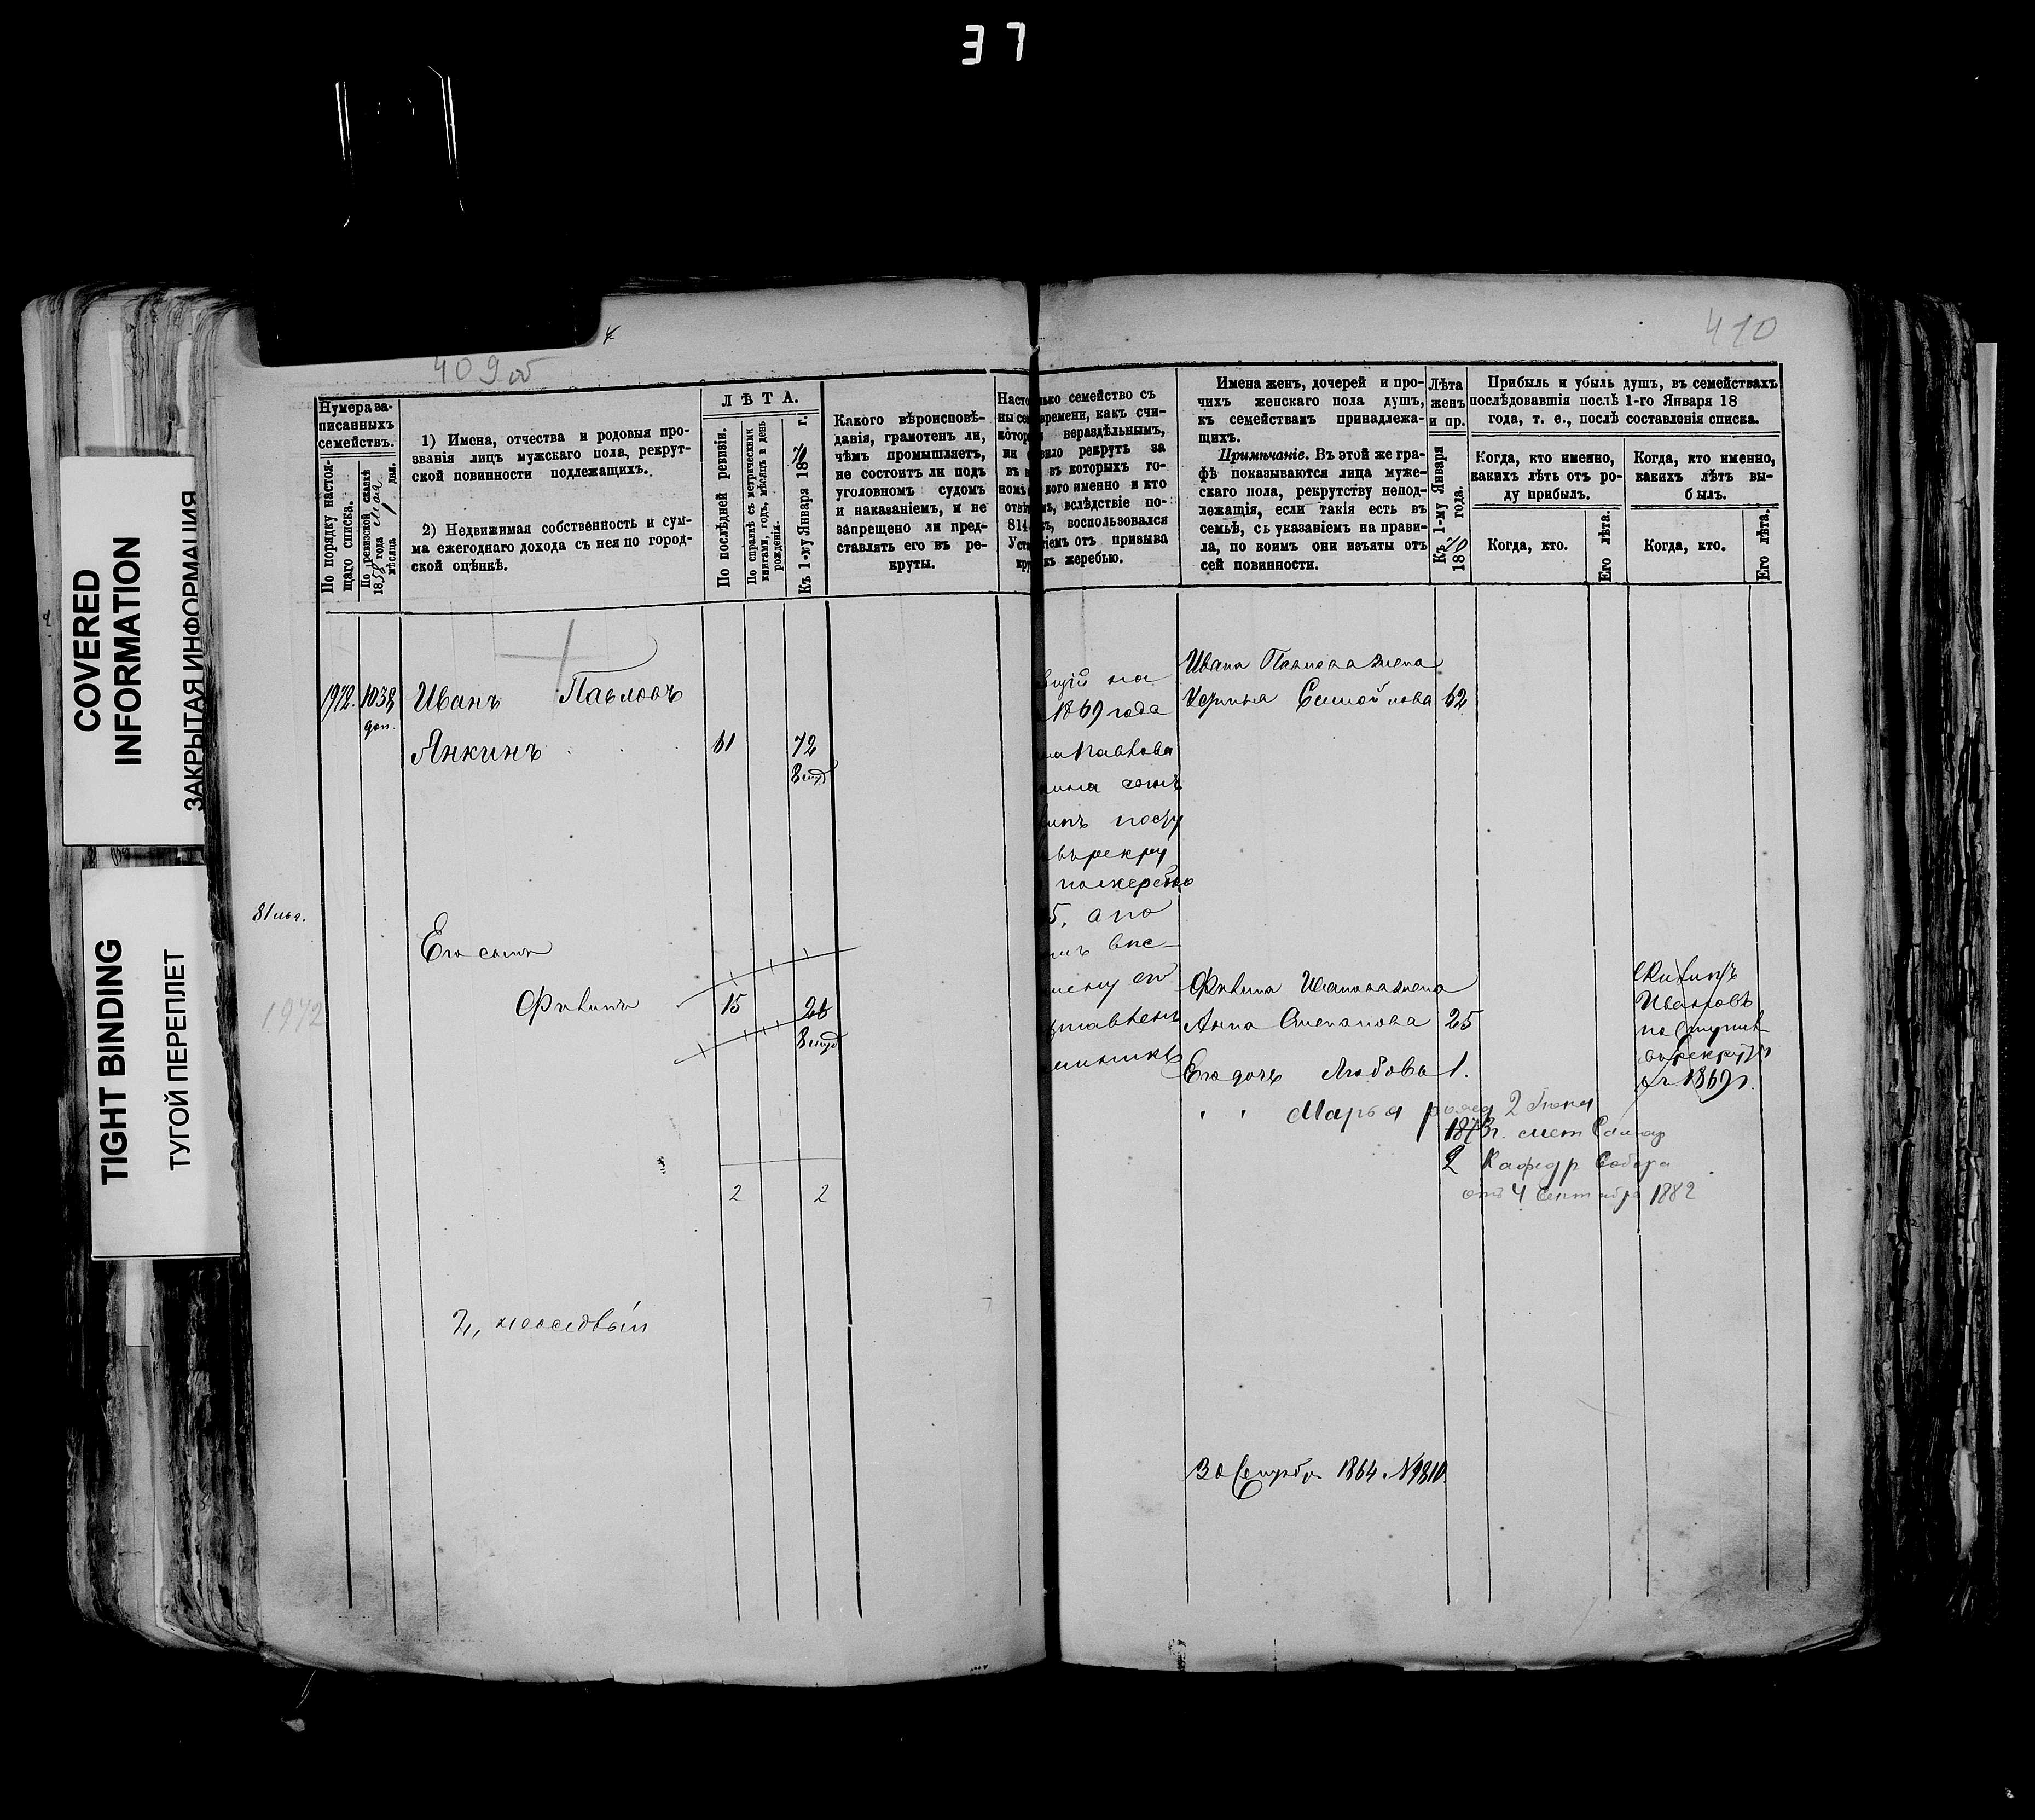 37
COVERED
INFORMATION
ЗАКРЫТАЯ ИНФОРМАЦИЯ
TIGHT BINDING
ТУГОЙ ПЕРЕПЛЕТ
409 об
410
Нумера за-
писанныхъ
семействъ.
По порядку настоя-
щаго списка.
По ревизской сказкѣ
1858 года мая
мѣсяца 1 дня.
1) Имена, отчества и родовыя про-
званія лицъ мужскаго пола, рекрут-
ской повинности подлежащихъ.
2) Недвижимая собственность и сум-
ма ежегоднаго дохода съ нея по город-
ской оцѣнкѣ.
ЛѢТА.
По послѣдней ревизіи.
По справкѣ съ метрическими
книгами, годъ, мѣсяцъ и день
рожденія.
Къ 1-му Января 1870 г.
Какого вѣроисповѣ-
данія, грамотенъ ли,
чѣмъ промышляетъ,
не состоитъ ли подъ
уголовномъ судомъ
и наказаніемъ, и не
запрещено ли пред-
ставлять его въ ре-
круты.
семейство съ
времени, какъ счи-
нераздѣльнымъ,
рекрутъ за
въ которыхъ го-
кого именно и кто
вслѣдствіе по-
814 воспользовался
отъ призыва
жеребью.
Имена женъ, дочерей и про-
чихъ женскаго пола душъ,
къ семействамъ принадлежа-
щихъ.
Примѣчаніе. Въ этой же гра-
фѣ показываются лица муже-
скаго пола, рекрутству непод-
лежащія, если такія есть въ
семьѣ, съ указаніемъ на прави-
ла, по коимъ они изъяты отъ
сей повинности.
Лѣта
женъ
и пр.
Къ 1-му Января
1870 года.
Прибыль и убыль душъ, въ семействахъ
послѣдовавшія послѣ 1-го Января 18
года, т. е., послѣ составленія списка.
Когда, кто именно,
какихъ лѣтъ отъ ро-
ду прибылъ.
Когда, кто именно,
какихъ лѣтъ вы-
былъ.
Когда, кто.
Его лѣта.
Когда, кто.
Его лѣта.
1972. 1038 Иванъ Павловъ
доп.
Янкинъ 61 72
Его сынъ
Филипъ 15 26
1972
2 2
на
1869 года
Павлова
сынъ
рекру
по жеребью
5, а по
Ивана Павлова жена
62
Филипа Иванова жена
Анна Степанова 25
Его дочь Любовь 1.
" " Марья рожд 2
1873 г.
2 Кафедр Собора
отъ 4 Сентября 1882
Филипъ
Ивановъ
поступилъ
въ рекруты
въ 1869 г.
30 Сентябр 1864 № 9810